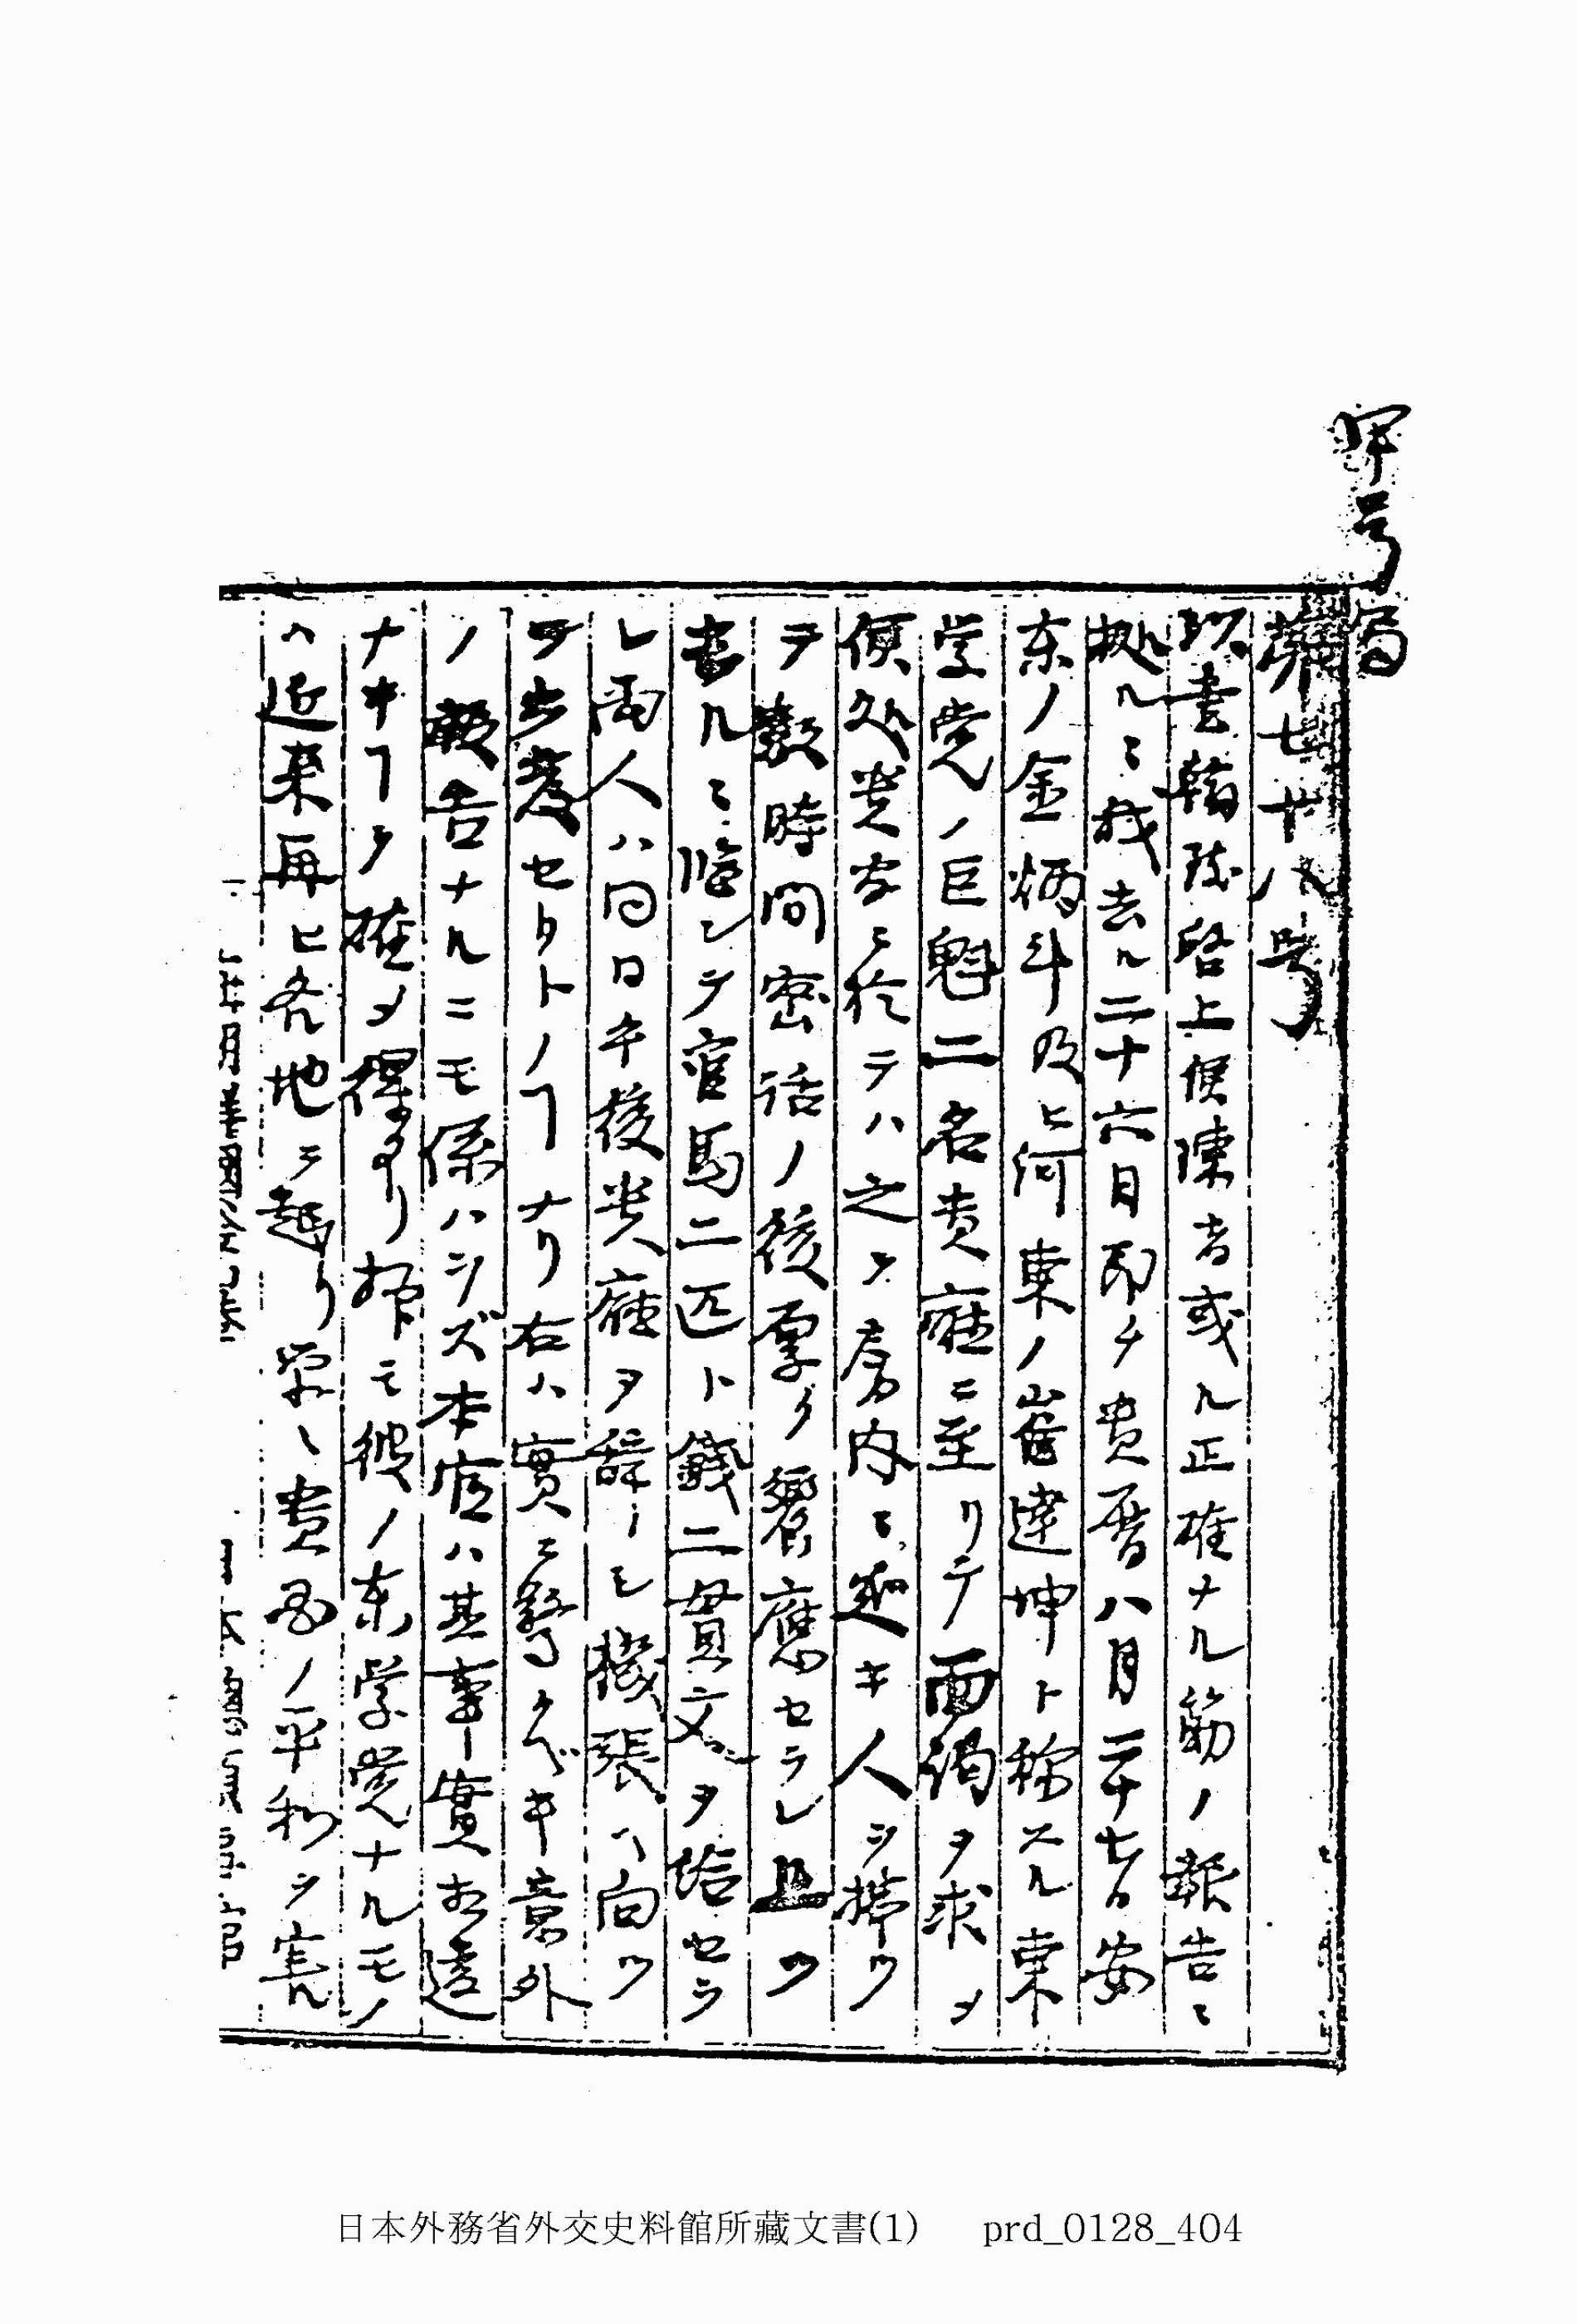 甲号
第七十八号
以書翰致啓上候陳者或ル正確ナル筋ノ報告ニ
拠ルニ我去ル二十六日即チ貴暦八月二十七日安
东ノ金炳斗及ヒ河東ノ崔達坤ト称スル東
学党ノ巨魁二名貴廳ニ至リテ面謁ヲ求メ
候处貴官ニ於テハ之ヲ房内ニ延キ人ヲ掃ツ
テ數時間密话ノ後厚ク饗應セラレ且ツ
書ルニ臨ンテ官馬二匹ト銭二貫文ヲ給セラ
レ两人ハ同日午後貴廳ヲ辞シ機張ヘ向ツ
テ出發セリトノヿナリ右ハ實ニ驚クベキ意外
ノ報告ナルニモ係ハラズ本官ハ其事實相違
ナキヿヲ確メ得タリ抑モ彼ノ东学党ナルモノ
ハ近來再ヒ各地ニ起リ専ラ貴國ノ平和ヲ害
日本外務省外交史料館所藏文書(1) prd_0128_404